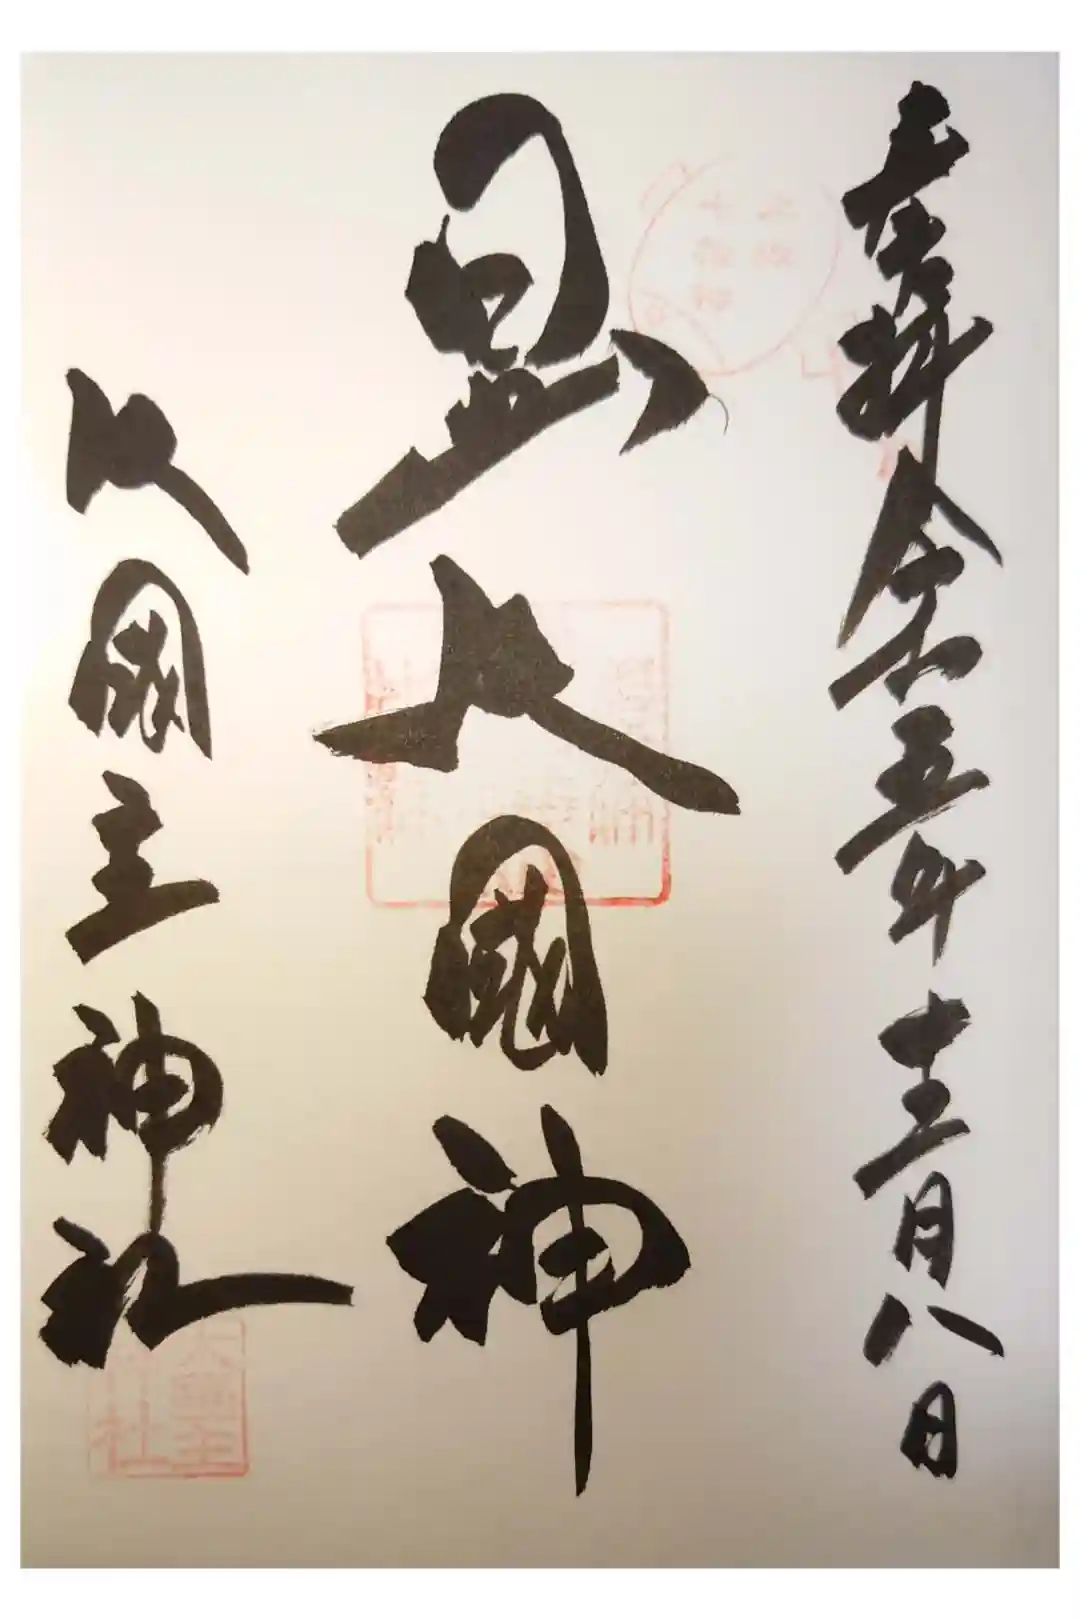 奉拝 令和五年十二月八日
日出大國神
大國主神社